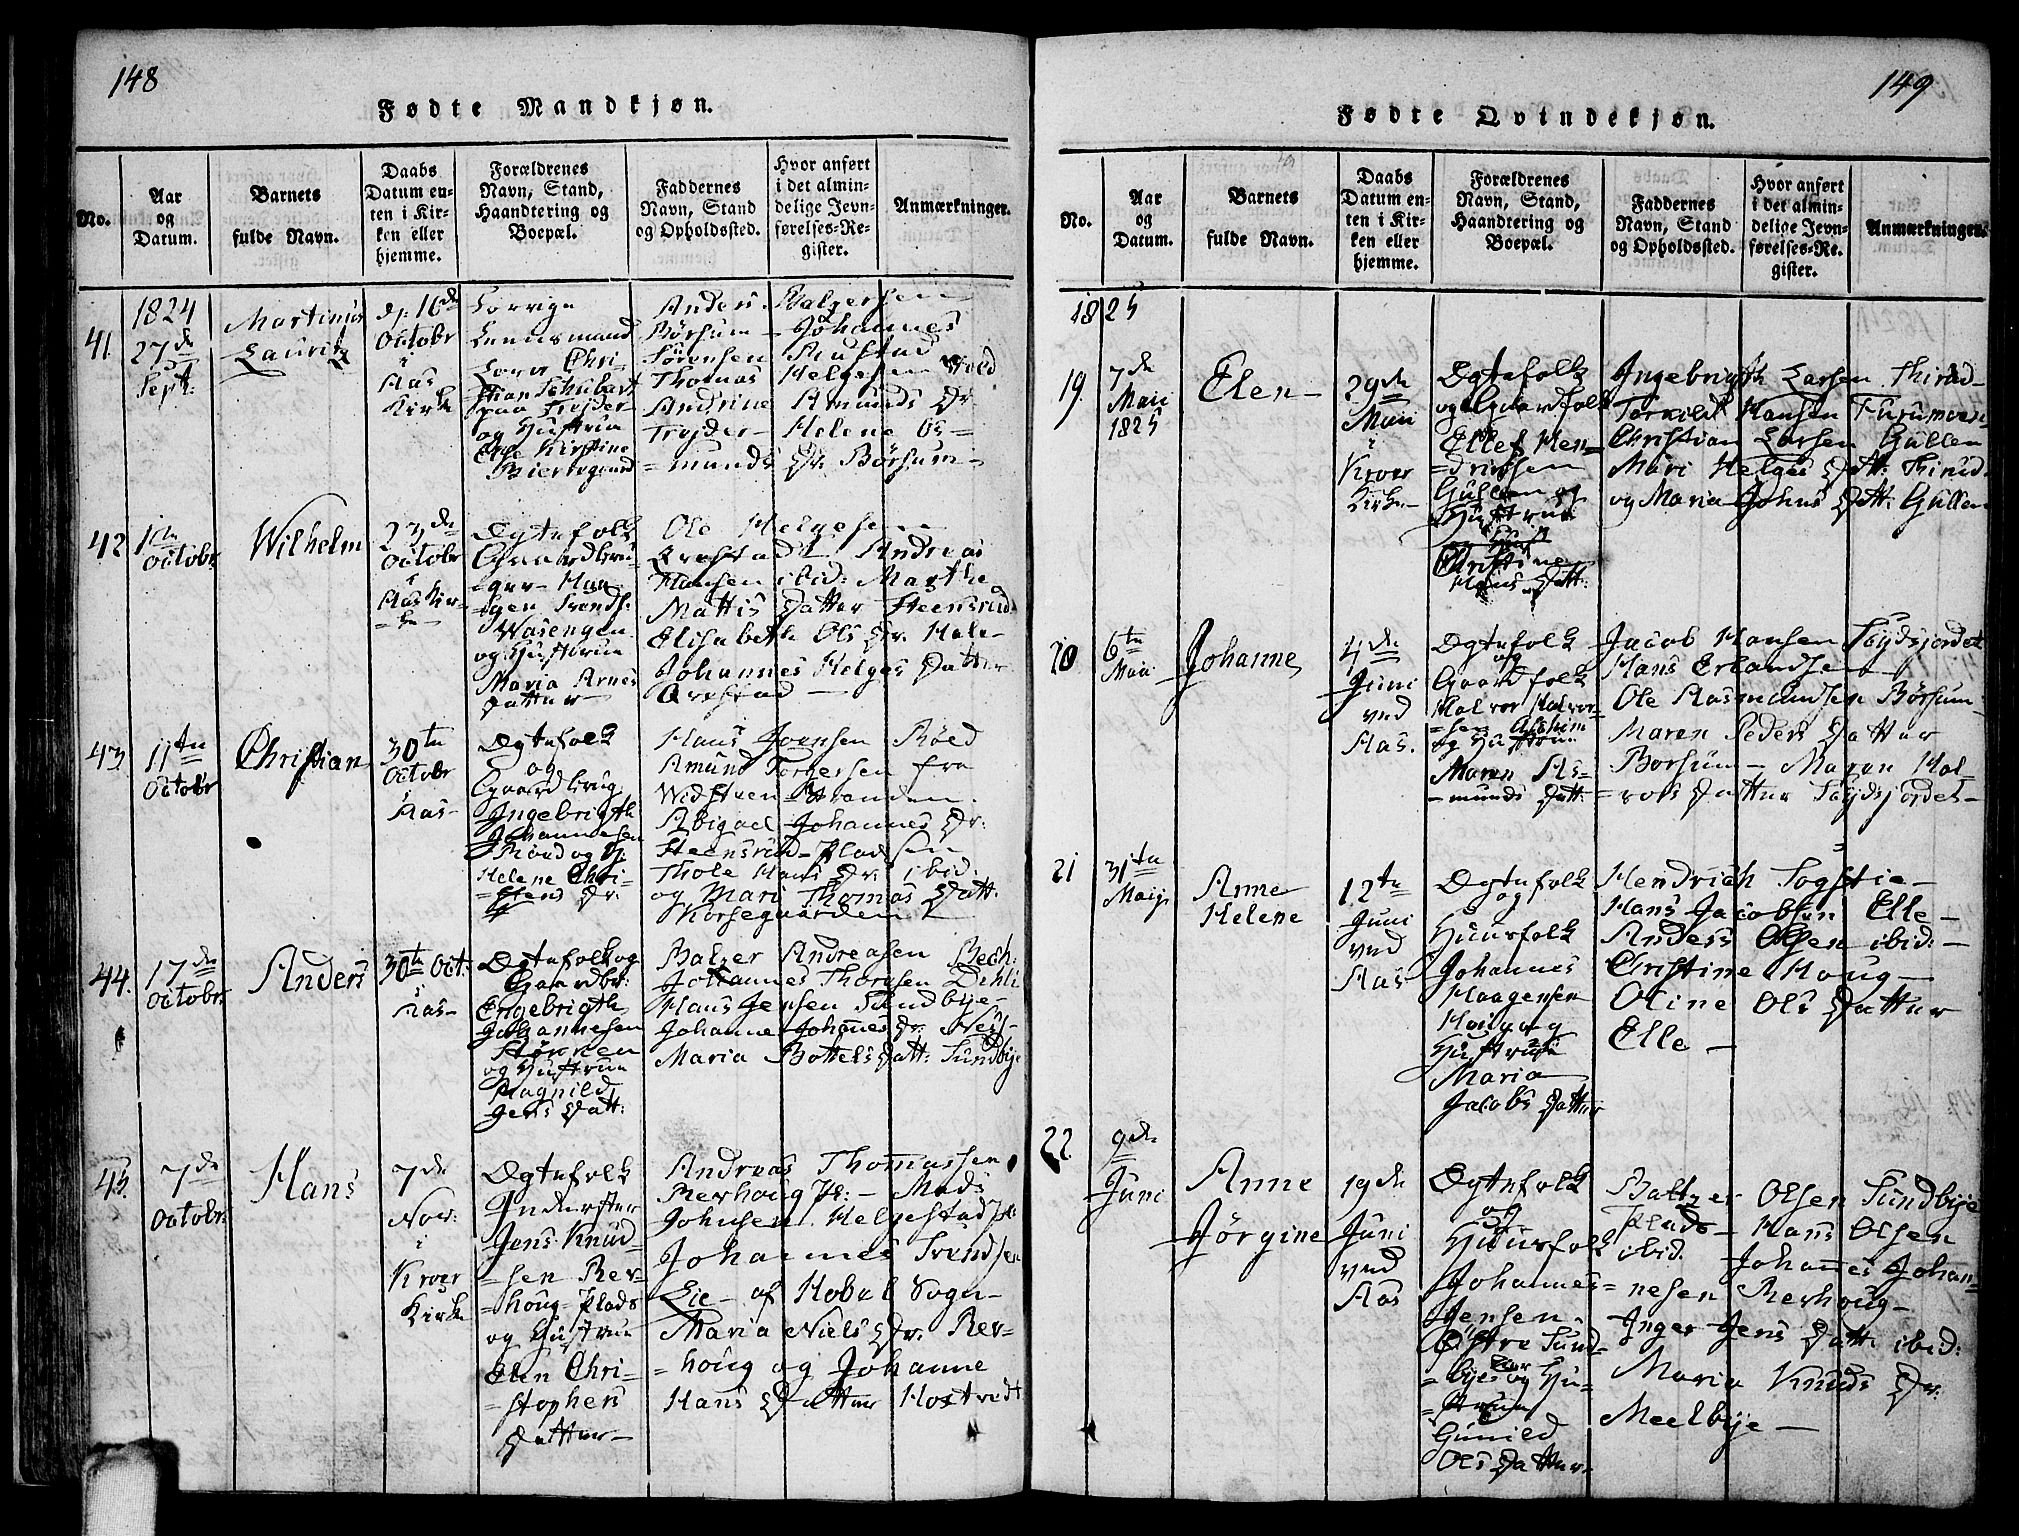 148
Fødte Mandkjøn.
No.
Aar
og
Datum.
Barnets
fulde Navn.
Daabs
Datum en-
ten i Kir-
ken eller
hjemme.
Forældrenes
Navn, Stand,
Haandtering og
Boepæl.
Faddernes
Navn, Stand
og Opholdssted.
Hvor anført
i det almin-
delige Jevn-
førelses-Re-
gister.
Anmærkninger.
41.
1824
27de
Sept:
Martinus
Lauritz
dp: 16de
Octobr
i
Aas
Kirke
Lennsmand
Chri-
stian Schubart
paa Trojder
og Hustrue
Else Kirstine
Anders Balzersen
Börsum – Johannes
Sörensen Rustad
Thomas Helgesen Wold
Andrine Amunds Dr
Trojder – Helene As-
=munds Dr. Börsum –
42
1ste
Octobr.
Wilhelm
23de
Octobr
i
Aas Kir-
=ke –
Ægtefolk
Gaardbru-
=ger – Haa-
=gen Svends:
Wasengen
og Hustrue
Maria Arnes
Datter –
Ole Helgesen
Qvestad – Andreas
Hansen ibid: Marthe
Mattis Datter Steensrud
Elisabeth Ols Dr. Hole –
Johannes Helges Datter
Qvestad –
43
11te
Octobr
Christian
30te
Octobr
i
Aas –
Ægtefolk
og
Gaardbrug
Ingebrigth
Johannesen
Röed og H.
Helene Chri-
=stens Dr.
Hans Joensen Röed
Amund Torgersen fra
Widsteen – Stranden.
Abigael Johannes Dr:
Steensrud – Pladsen
Thole Hans Dr. ibid.
og Mari Thomas Datt:
Korsegaarden
44.
17de
Octobr.
Anders
30te Oct:
i
Aas –
Ægtefolk og
Gaardbr:
Engebrigth
Johannesen
Störken
og Hustrue
Ragnild
Jens Datt:
Balzer Andreasen Bech:
Johannes Thorsen Dehli
Hans Jensen Sundbye –
Johanne Johannes Dr. Næss –
Maria Bottels Datt: Sundbye
45.
7de
Octobr.
Hans
7de
Nov:
i
Kroer
Kirke
Ægtefolk
Inderster
Jens Knud-
=sen Rev-
=houg – Plads
og Hustrue
Elen Chri-
=stophers
Datter –
Andreas Thomassen
Revhoug Pl: – Mads
Johnsen Helgestad Pl:
Johannes Svendsen
Lie – af Hobøl Sogn –
Maria Niels Dr. Rev-
=houg og Johanne
Hans Datter Hostvedt
149
Fødte Qvindekjøn.
No.
Aar
og
Datum.
Barnets
fulde Navn.
Daabs
Datum en-
ten i Kir-
ken eller
hjemme.
Forældrenes
Navn, Stand,
Haandtering og
Boepæl.
Faddernes
Navn, Stand
og Opholdssted.
Hvor anført
i det almin-
delige Jevn-
førelses-Re-
gister.
Anmærkninger.
1825
19.
7de
Maii
1825
Elen –
29de
Maii
i
Kroer
Kirke –
Ægtefolk
og Gaardfolk
Ellef Hen-
=drichsen
Gullen og
Hustrue
Christine
Hans Datt:
Ingebrigth Larsen Thirud –
Torkild Hansen Furumoen
Christian Larsen Gullen
Mari Helges Datt: Thirud
og Maria Johns Datt: Gullen
20
6te
Maii
Johanne
4de
Juni
ved
Aas.
Ægtefolk
og
Gaardfolk
Halvor Halvor-
=sen Askeim
og Hustrue
Maren As-
=munds Datt:
Jacob Hansen Togdsjordet
Hans Erlandsen
Ole Rasmundsen Börsum –
Maren Peders Datter
Borsum – Maren Hal-
=vors Datter Togdsjordet –
21
31te
Maij.
Anne
Helene
12te
Juni
ved
Aas
Ægtefolk
og
Huusfolk
Johannes
Haagensen
Houg og
Hustrue
Maria
Jacobs Datter
Hendrich Togstie –
Hans Jacobsen Elle –
Anders Olsen ibid: –
Christine Houg –
Oline Ols Datter
Elle –
22.
9de
Juni
Anne
Jörgine
19de
Juni
ved
Aas
Ægtefolk
og
Huusfolk
Johannes
Jensen
Östre Sund-
=bye og Hu-
=strue
Gunild
Ols Datter –
Baltzer Olsen Sundbye
Plads – Hans Olsen
ibid. Johannes Johan-
=nesen Revhoug –
Inger Jens Datt: ibid:
Maria Knuds Dr.
Meelbye –